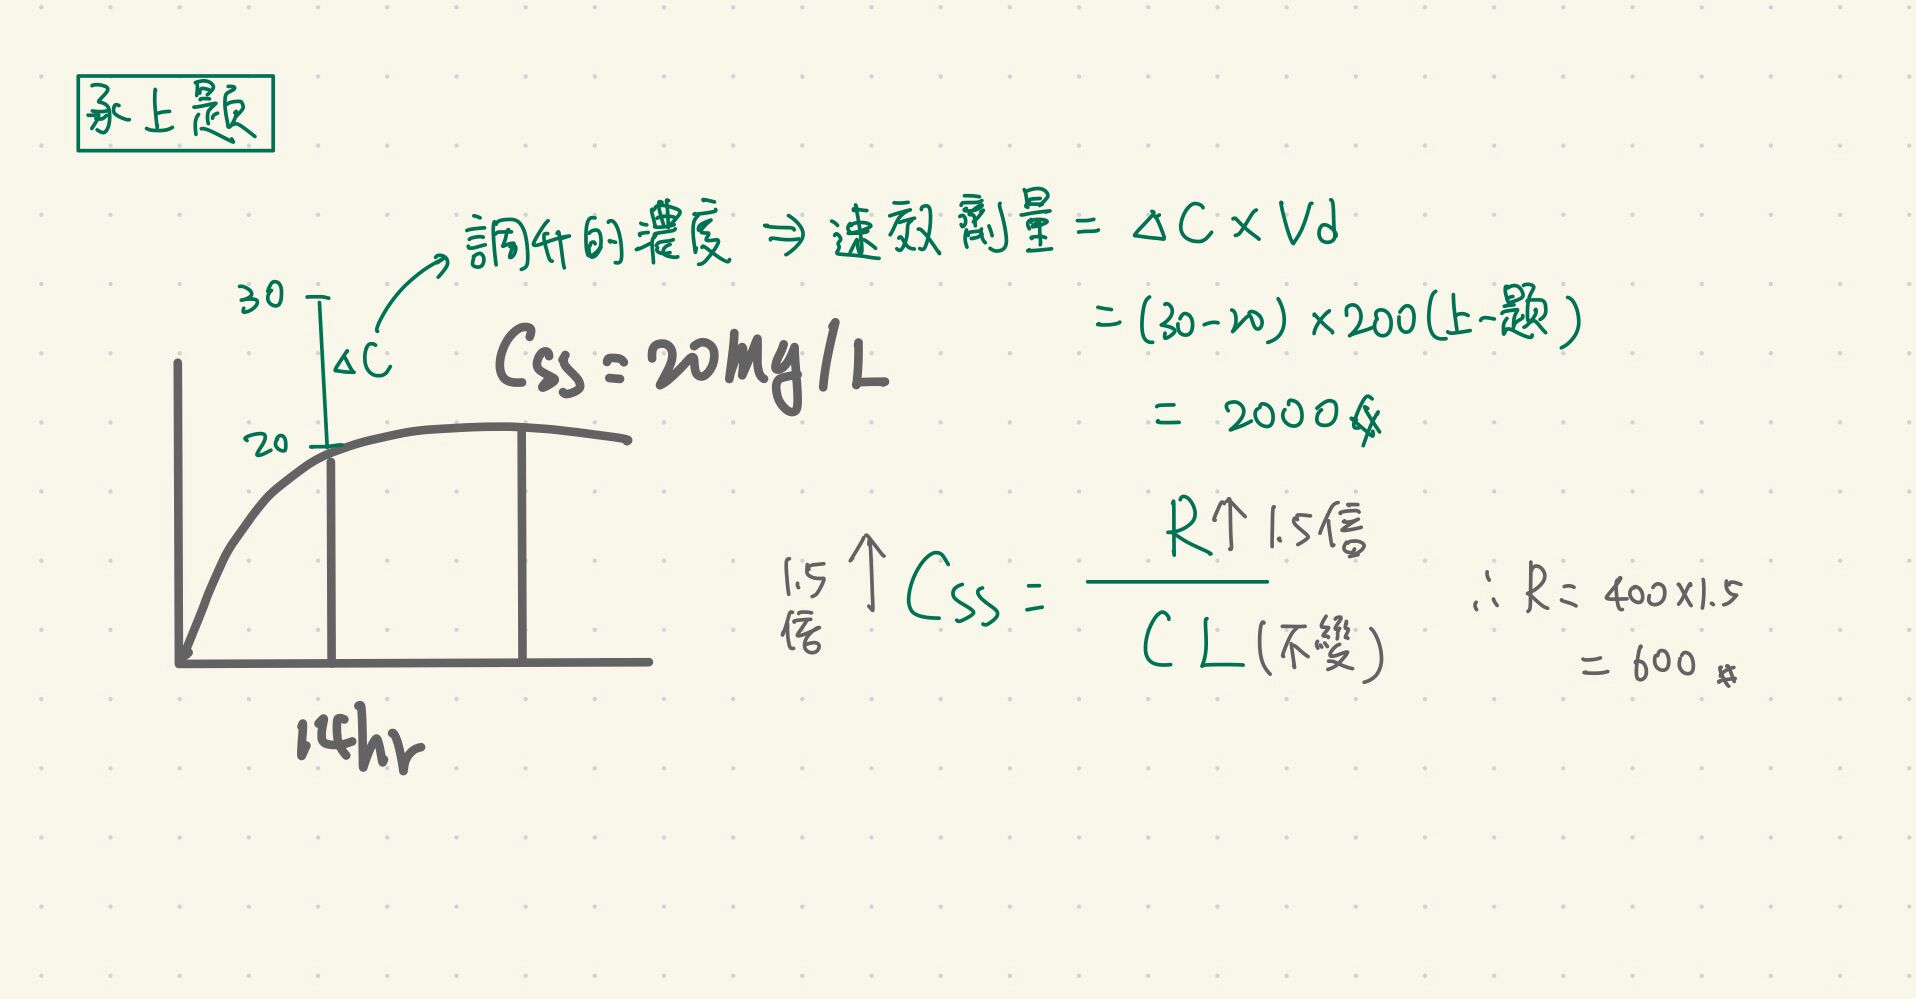 承上題
調升的濃度 ⇒ 速效劑量 = △C × Vd
= (30-20) × 200 (上一題)
= 2000
30
△C
20
Css = 20mg/L
14hr
1.5倍 ↑ Css = R↑ 1.5倍 / CL (不變)
∴ R = 400×1.5
= 600